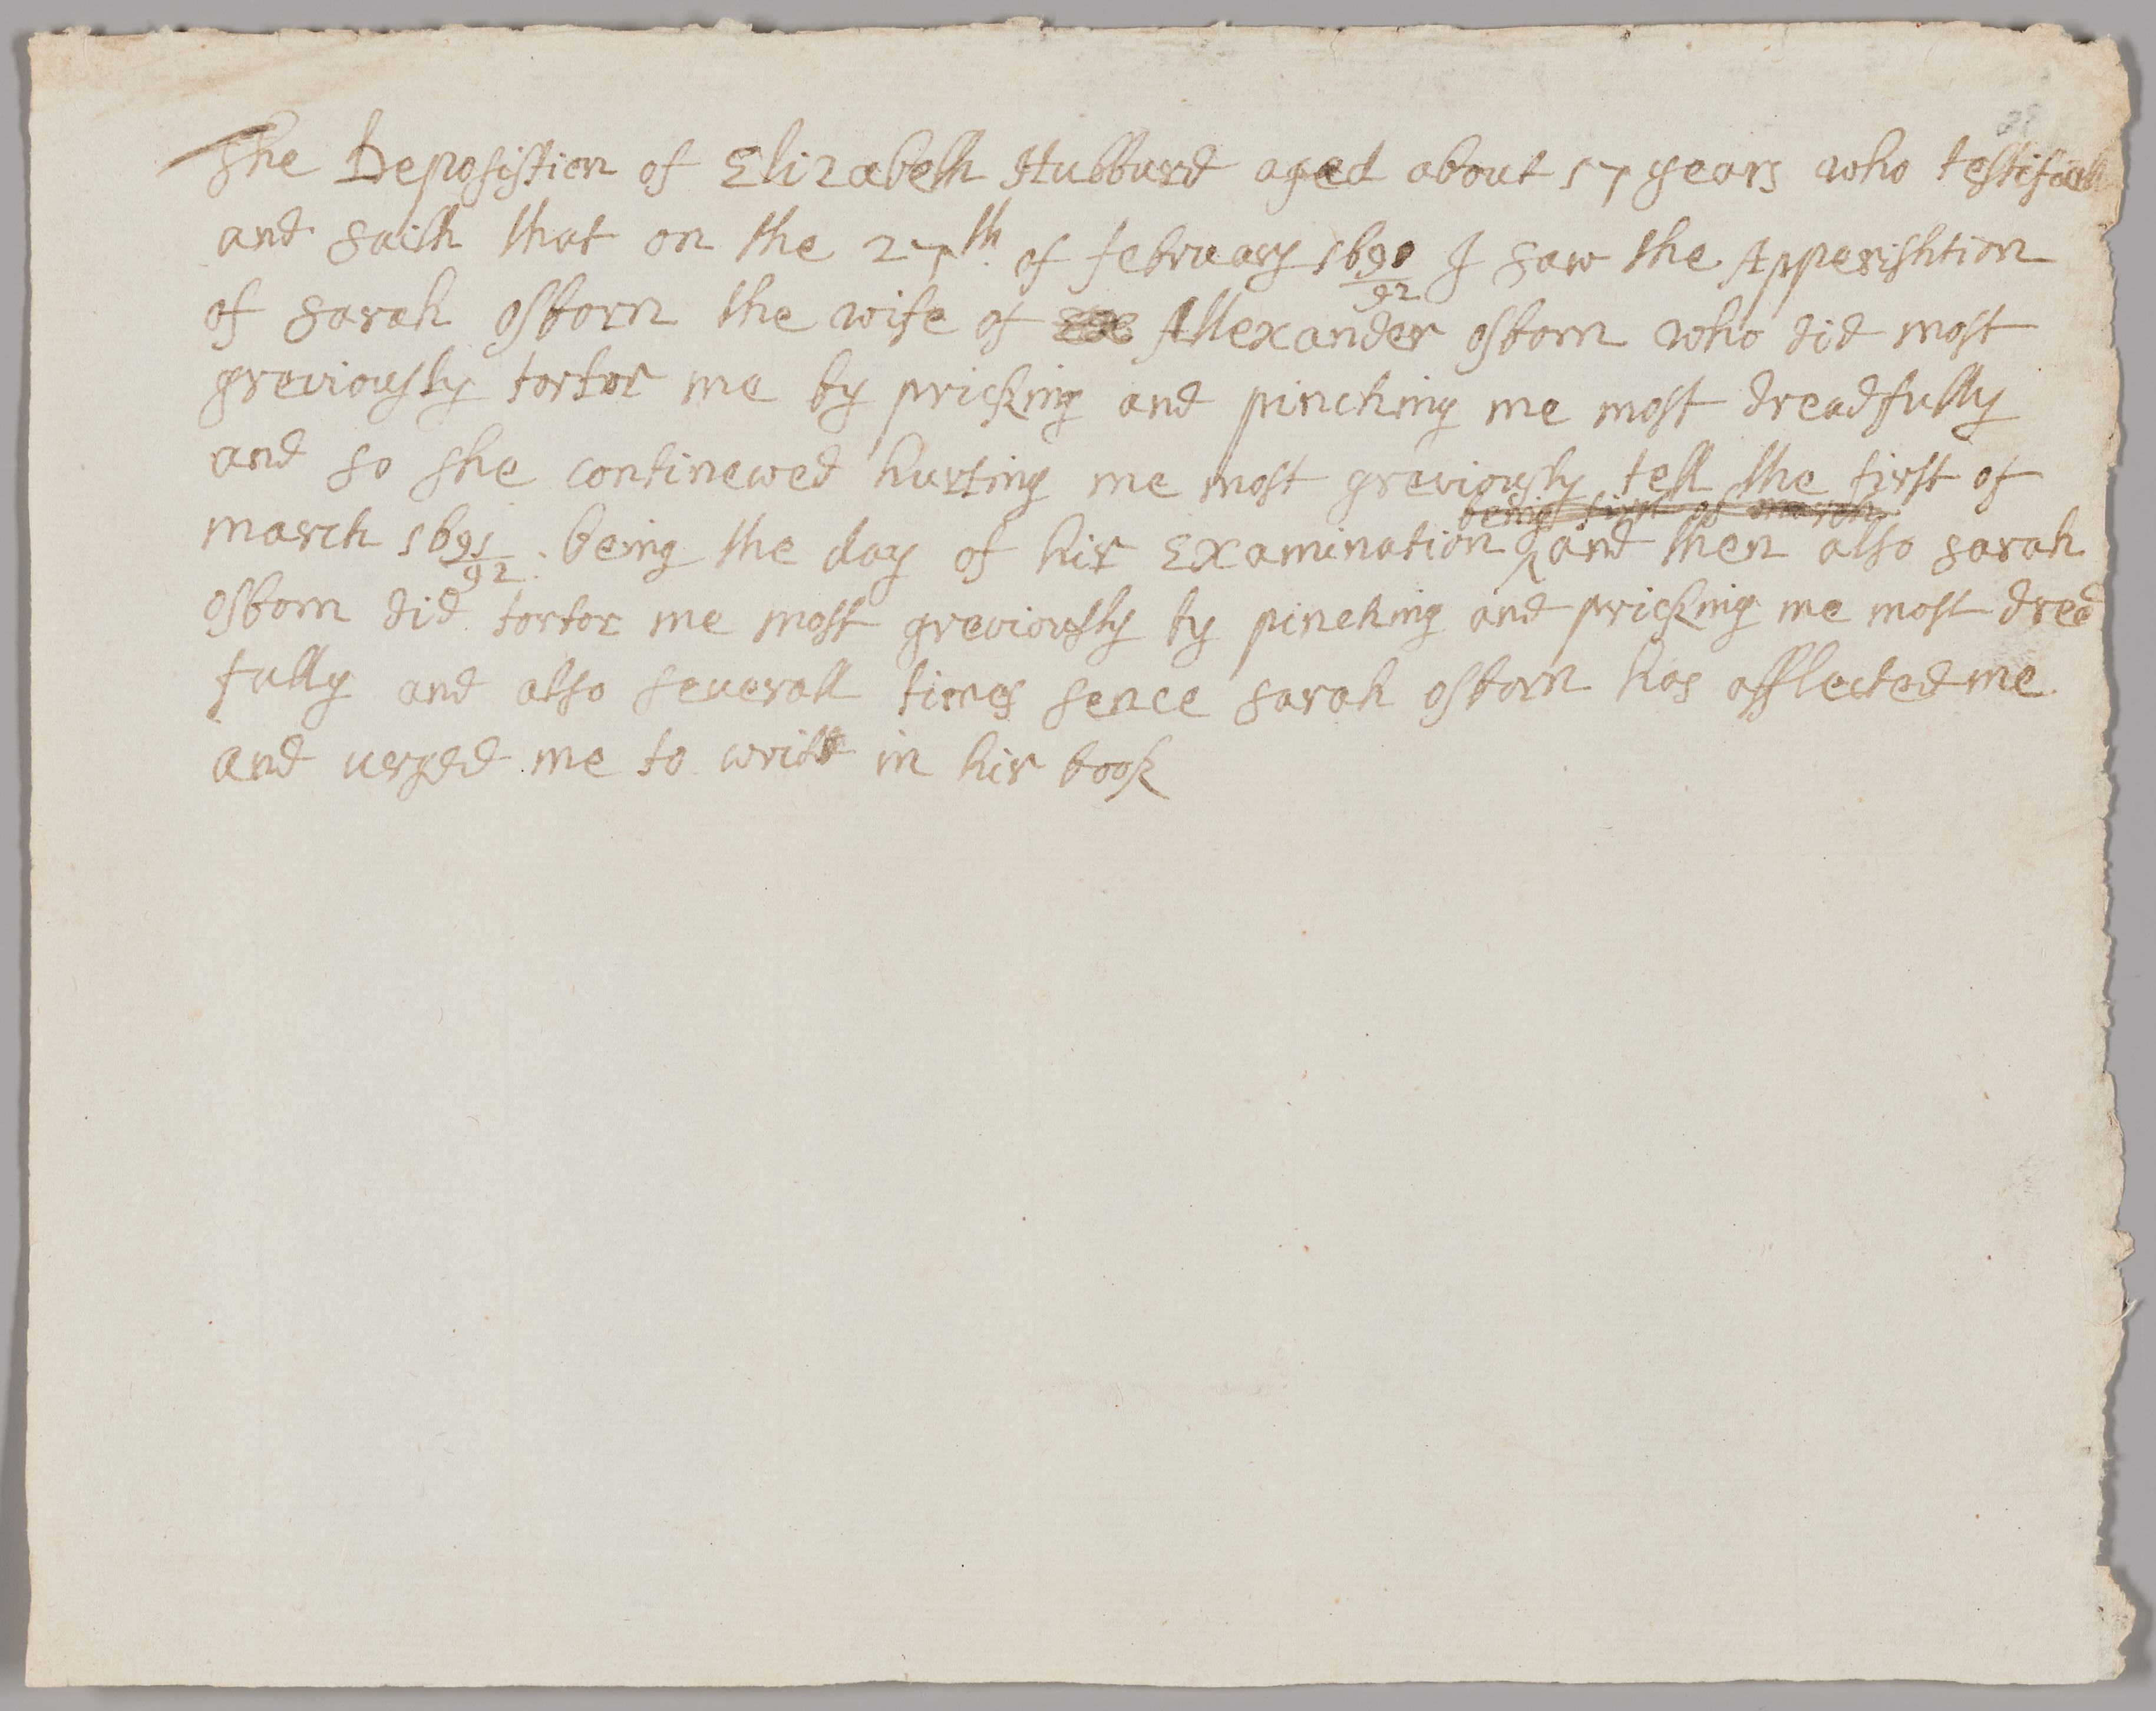 The Deposistion of Elizabeth Hubburd aged about 17 years who testifieth
and saith that on the 27th of february 1691/92 I saw the Apperishtion
of sarah osborn the wife of Allexander osborn who did most
greviously tortor me by pricking and pinching me most dreadfully
and so she continewed hurting me most greviously tell the first of
being first of march
march 1691/92: being the day of hir Examination and then also sarah
osborn did tortor me most greviously by pinching and pricking me most dred
fully and also severall times sence sarah osborn has afflected me
and uerged me to writ in hir book